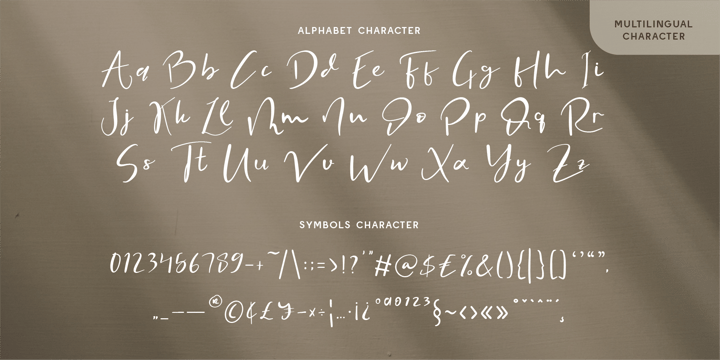 ALPHABET CHARACTER
MULTILINGUAL
CHARACTER
Aa Bb Cc Dd Ee Ff Gg Hh Ii
Jj Kk Ll Mm Nn Oo Pp Qq Rr
Ss Tt Uu Vv Ww Xa Yy Zz
SYMBOLS CHARACTER
0123456789-+~/\:;=>!?'"#@$£%&(){|}[]‘’“”.
„_–—®©¢£¥-×÷¦…·¡¿ºª0123§~‹›«»°